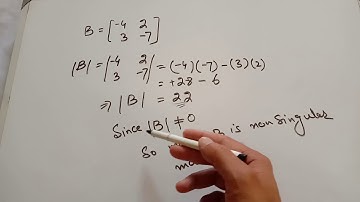 B = [-4 2
3 -7]
|B| = |-4 2
3 -7| = (-4)(-7) - (3)(2)
= +28 - 6
⇒ |B| = 22
Since |B| ≠ 0
So B is non Singular